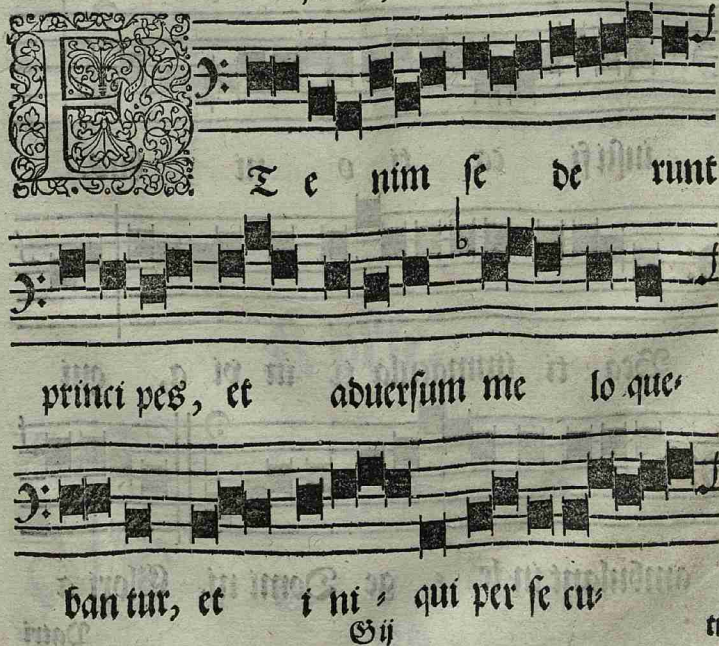 ET e nim se de runt
princi pes, et aduersum me lo que-
ban tur, et i ni- qui per se cu-
Gij